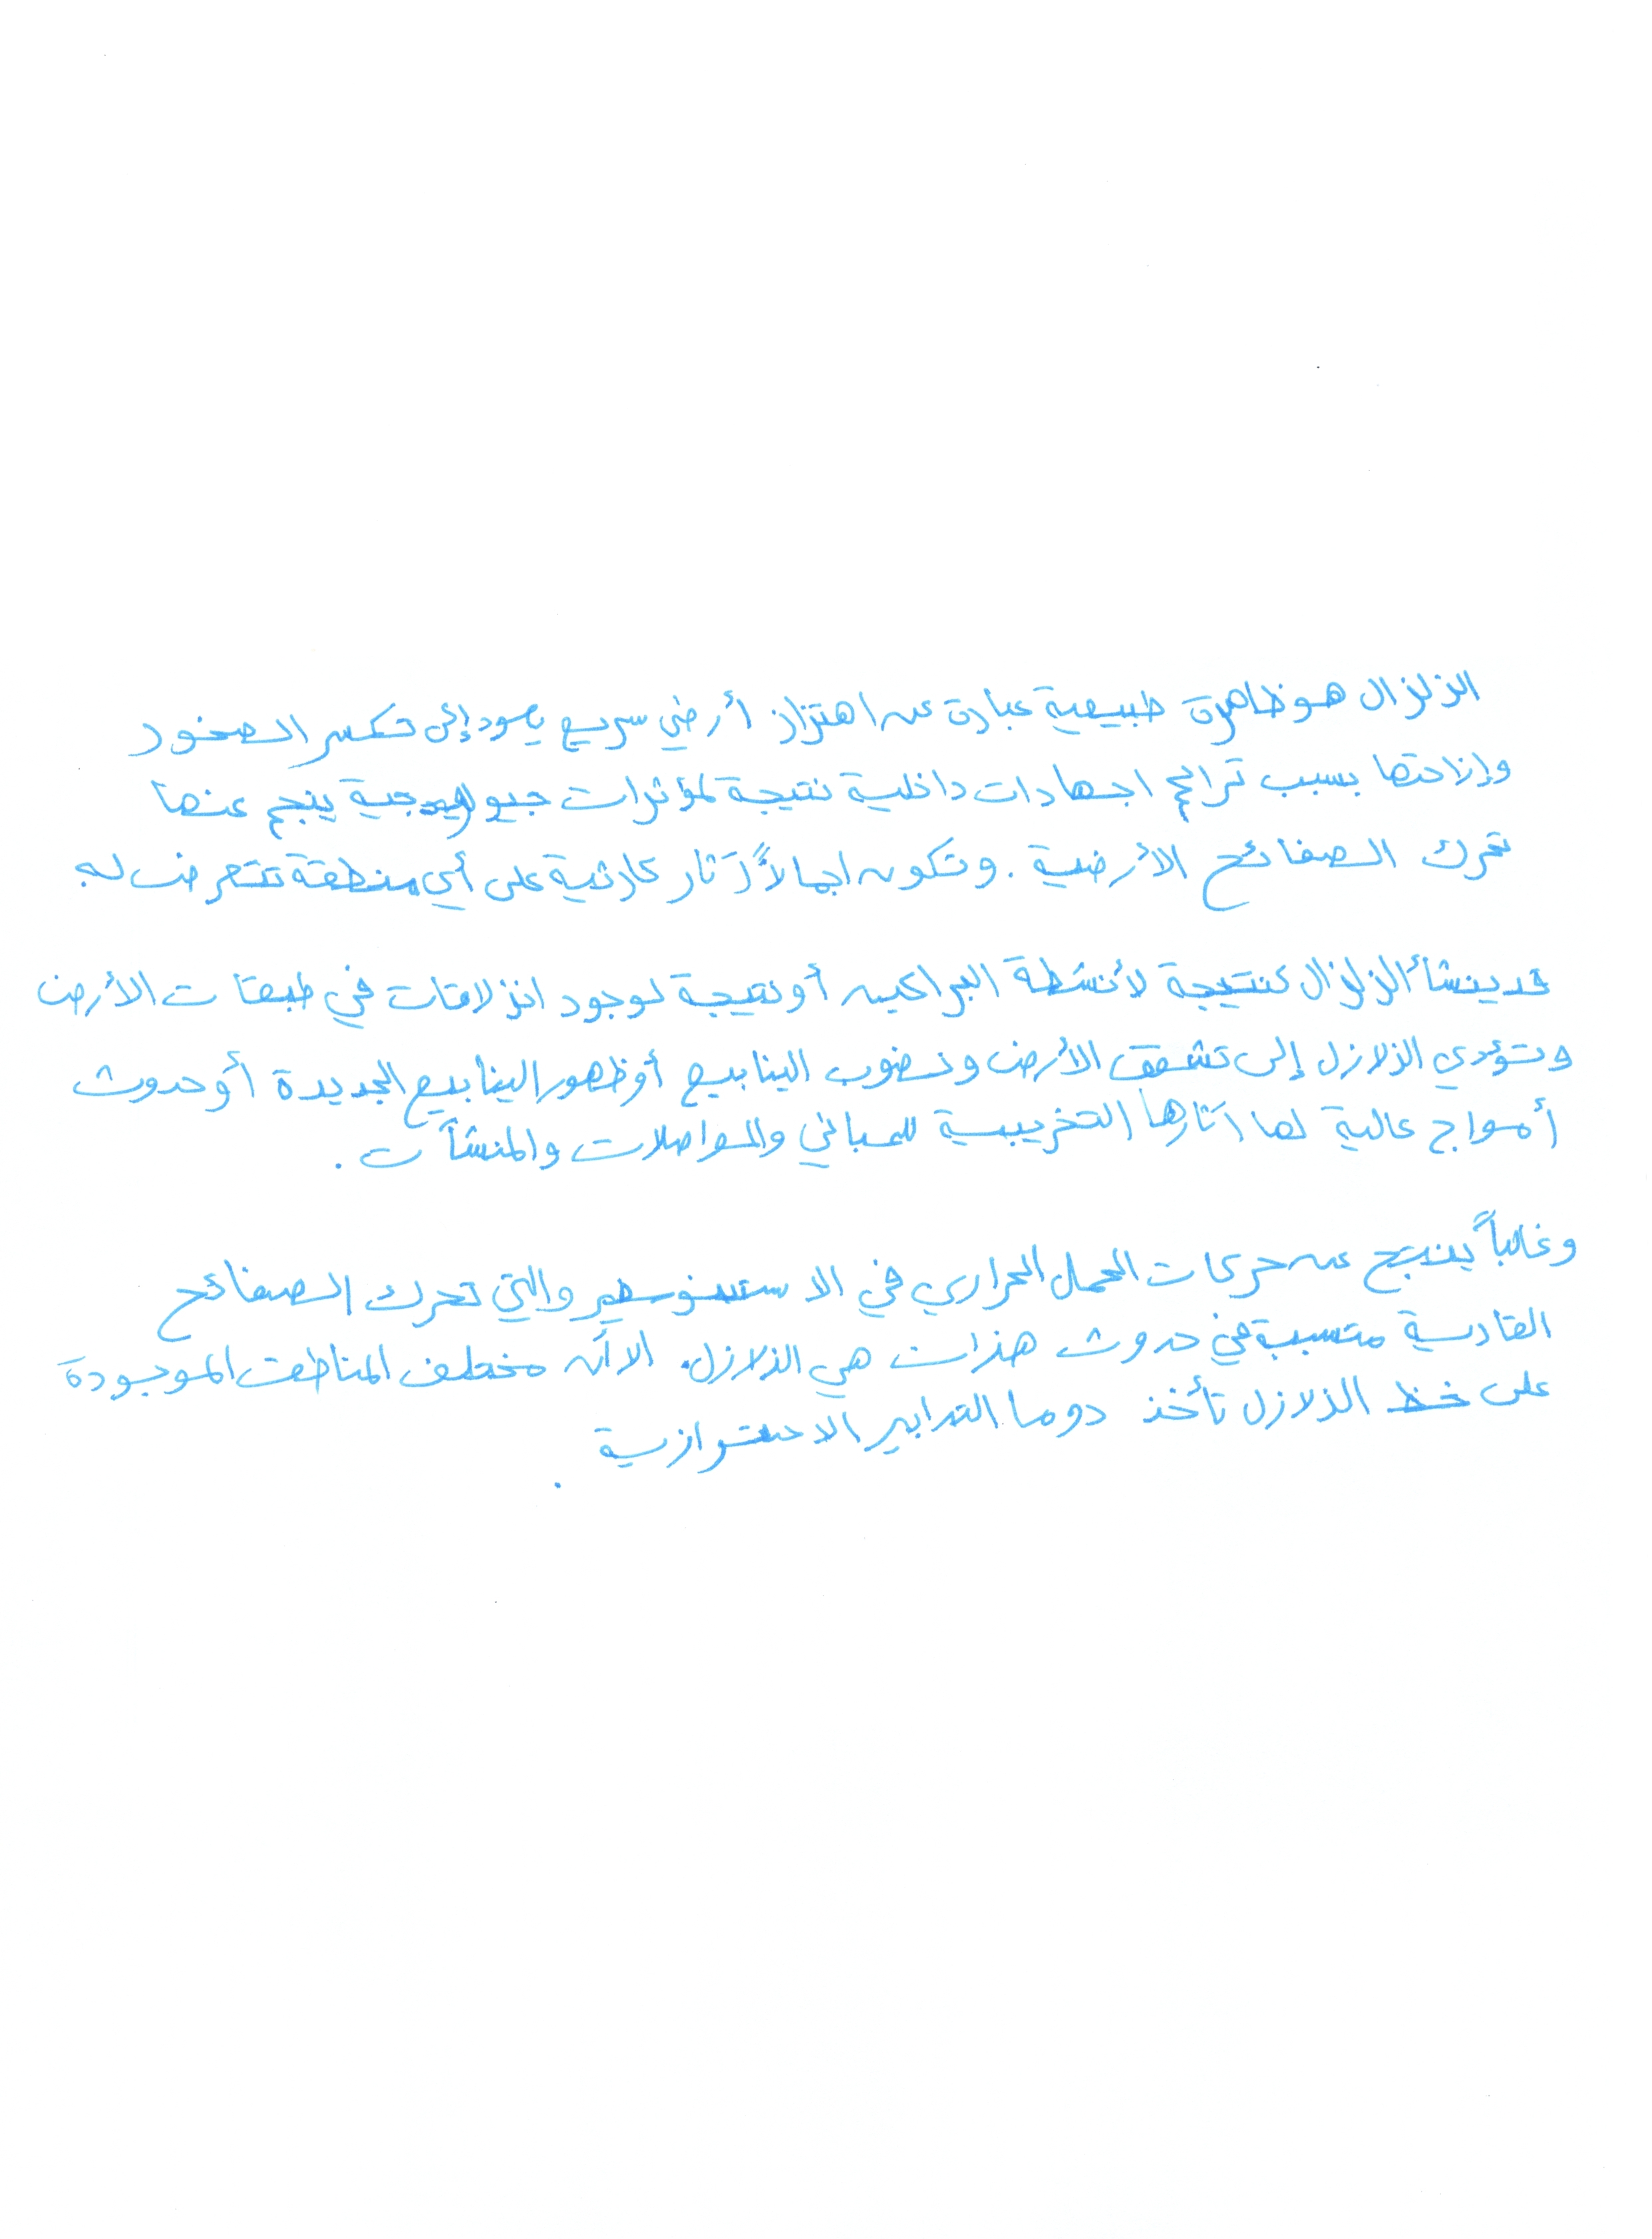 الزلزال هو ظاهرة طبيعية عبارة عن اهتزاز أرضي سريع يعود إلى تكسر الصخور
وإزاحتها بسبب تراكم اجهادات داخلية نتيجة لمؤثرات جيولوجية ينجم عنها
تحرك الصفائح الأرضية . وتكون اجمالاً آثار كارثية على أي منطقة تتعرض له
قد ينشأ الزلزال كنتيجة لأنشطة البراكين أو نتيجة لوجود انزلاقات في طبقات الأرض
وتؤدي الزلازل إلى تشقق الأرض ونضوب الينابيع أو ظهور الينابيع الجديدة أو حدوث
أمواج عالية لها آثارها التخريبية للمباني والمواصلات والمنشآت .
وغالباً ينتج عن حركات الحمل الحراري في الاستينوسفير والتي تحرك الصفائح
القارية متسببة في حدوث هذات هي الزلازل. الا أن مختلف المناطق الموجودة
على خط الزلازل تأخذ دوما التدابير الاحترازية .